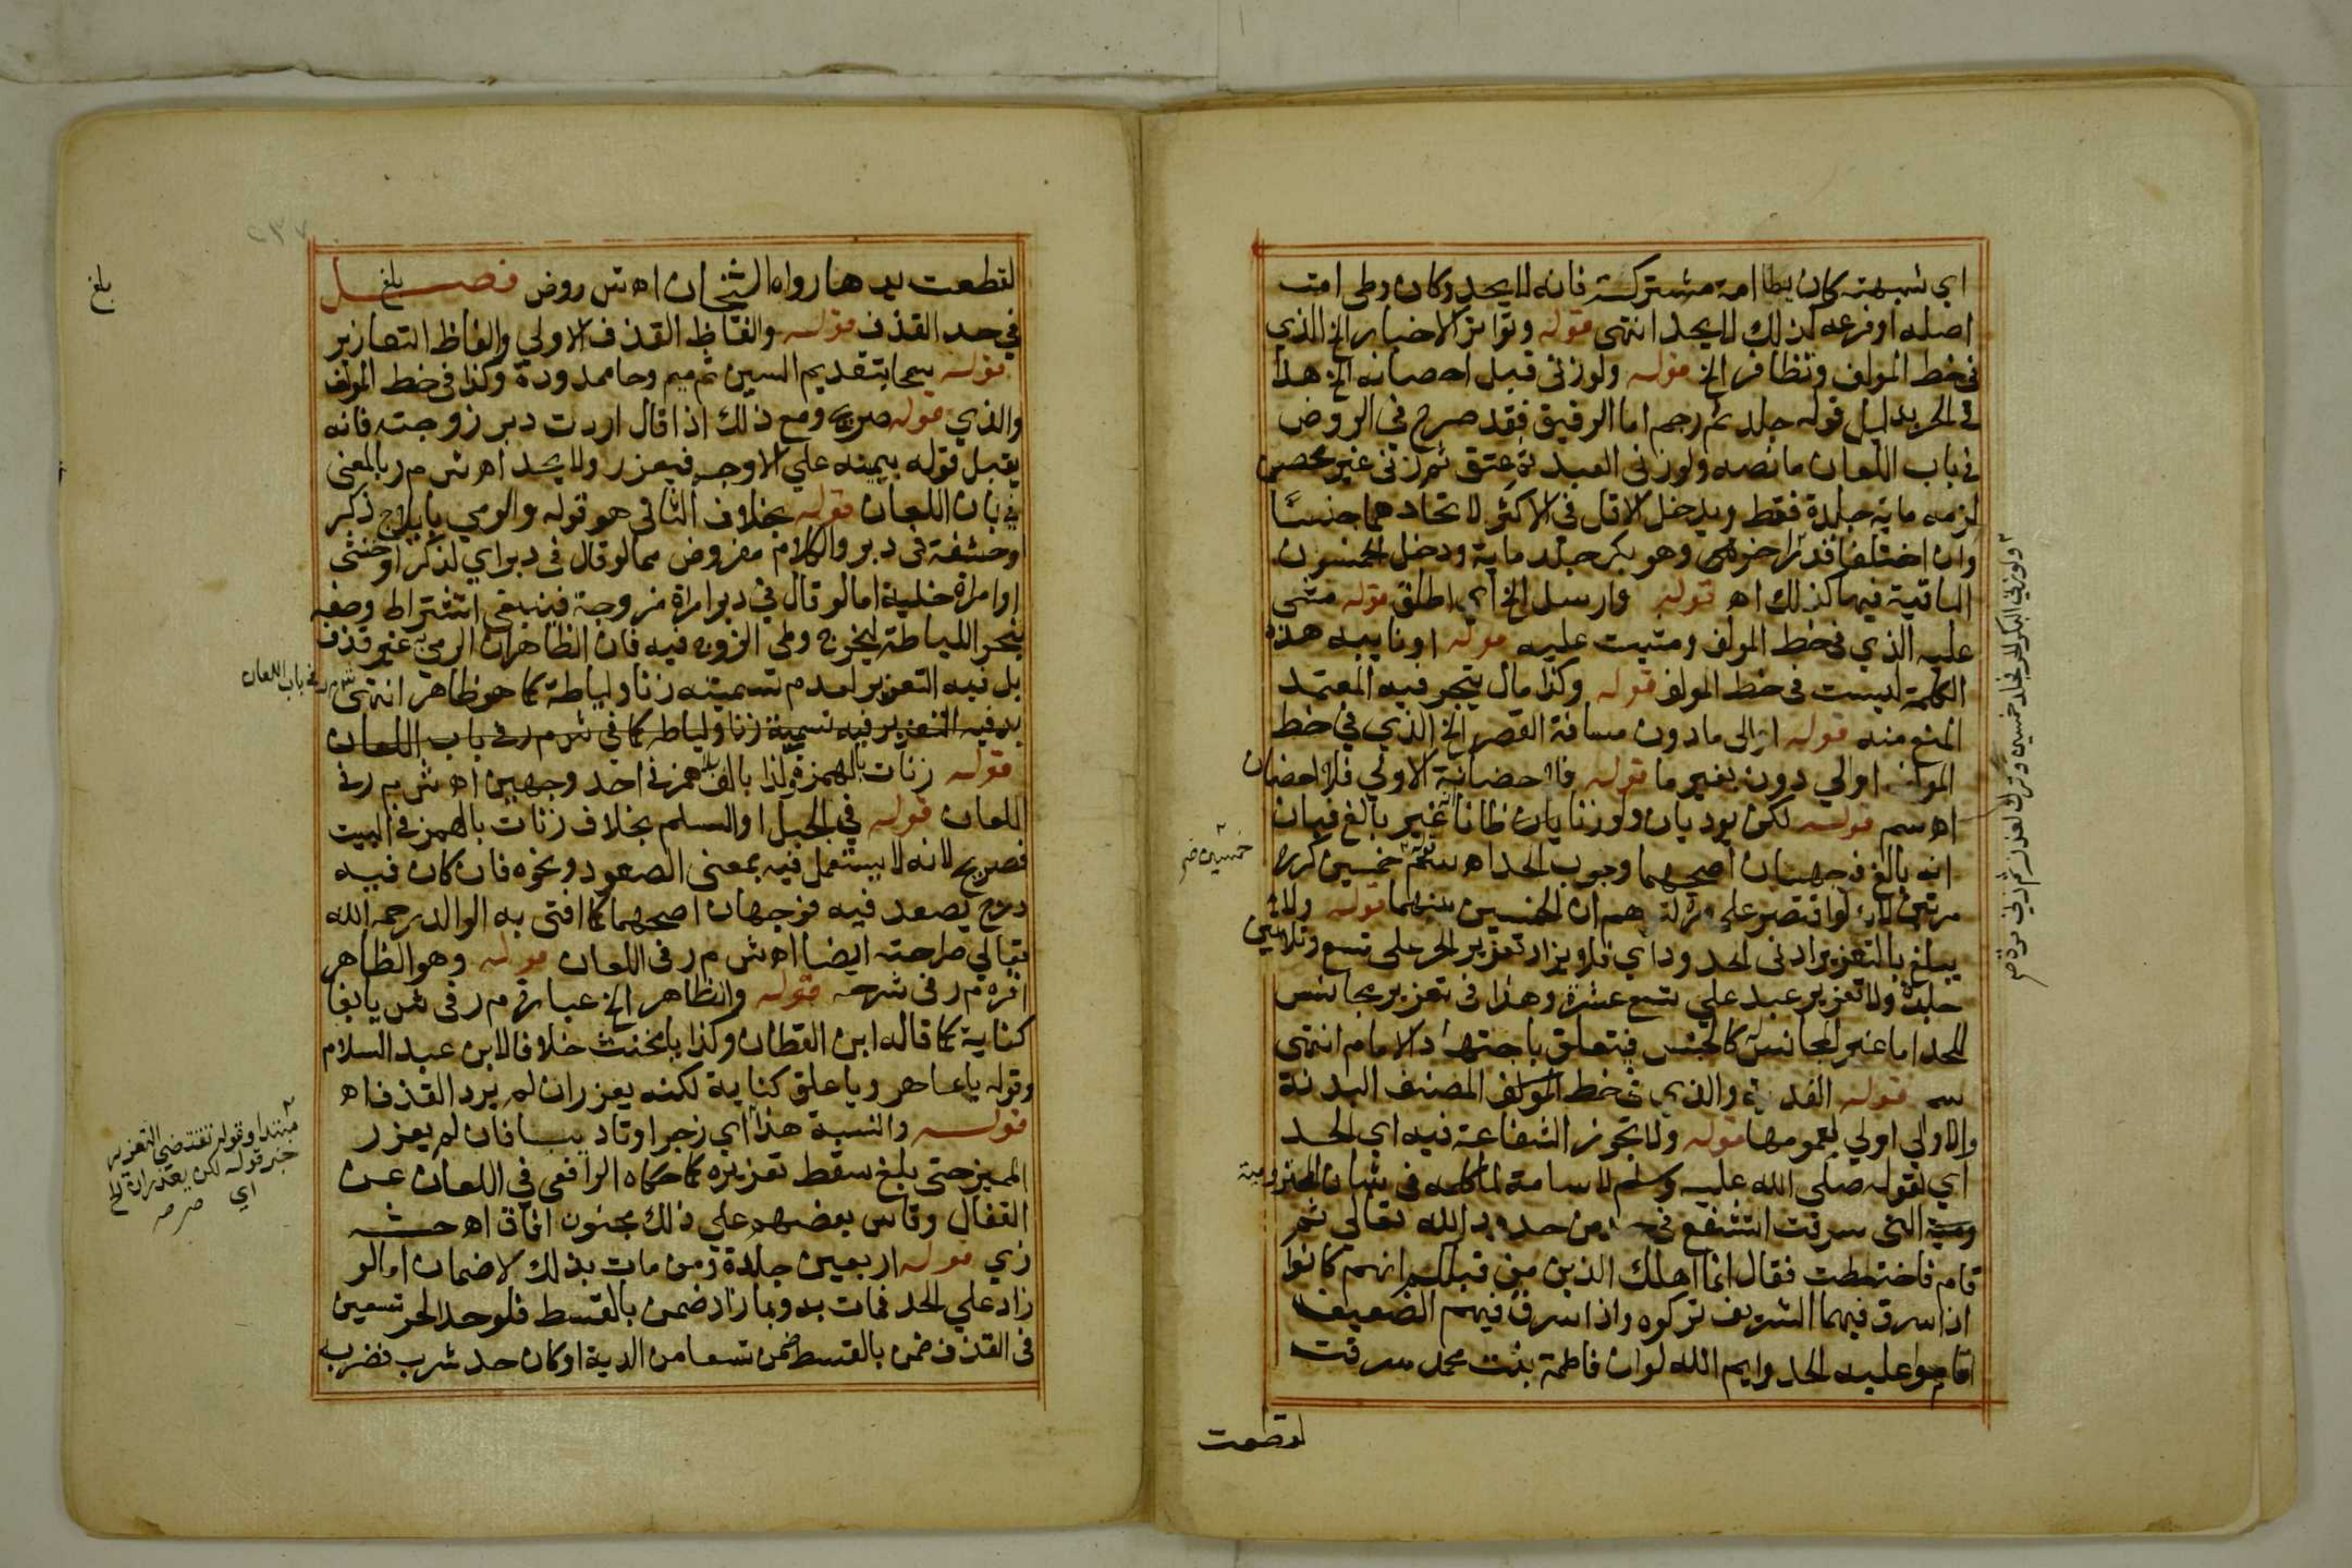 اي شبهته كان يطا امة مشتركة فانه لا يحد وكان وطى امة
اصله او فرعه كذلك لا يحد انتهى قوله وتواتر الاخبار الخ الذي
في خط المولف وتظافر الخ قوله ولو زنى قبل احصانه الخ هذا
في الحر بدليل قوله جلد ثم رجم اما الرقيق فقد صرح في الروض
في باب اللعان ما نصه ولو زنى العبد ثم عتق ثم زنى غير محصن
لزمه ماية جلدة فقط ويدخل الاقل في الاكثر لاتحادهما جنسا
وان اختلفا قدرا وهو بكر جلد ماية ودخل الخمسون
الباقية فيها كذلك اه قوله وارسل الخ اي اطلق قوله مشى
عليه الذي في خط المولف ومشيت عليه قوله او نايبه هذه
الكلمة ليست في خط المولف قوله وكذا مال يتجر فيه المعتمد
المنع منه قوله او الى ما دون مسافة القصر الخ الذي في خط
المولف او الي دون بغير ما قوله فلا حضانة الاولي فلا احصان
اه سم قوله لكن يوديان ولو زنا يان ظانا غير بالغ فبان
انه بالغ فوجهان اصحهما وجوب الحد اه خمسين كرره
مرتين لانه لو اقتصر على مرة لاوهم ان الخمسين بينهما قوله ولا
يبلغ بالتعزير ادنى الحدود اي فلا يزاد تعزير الحر على تسع وثلاثين
جلدة ولا تعزير عبد علي تسع عشرة وهذا في تعزير مجانس
للحد اما غير المجانس كالحبس فيتعلق باجتهاد الامام انتهى
سم قوله والذي في خط المولف المصنف البدنة
والاولي اولي لعمومها قوله ولا تجوز الشفاعة فيه اي الحد
اي لقوله صلي الله عليه وسلم لاسامة لما كلمه في شان المخزومية
ومية التي سرقت اتشفع في حد من حدود الله تعالى ثم
قام فاختطب فقال انما اهلك الذين من قبلكم انهم كانوا
اذا سرق فيهما الشريف تركوه واذا سرق فيهم الضعيف
اقاموا عليه الحد وايم الله لو ان فاطمة بنت محمد سرقت
لقطعت
ولو زنى البكر الحر فجلد خمسين وترك لعذر ثم زنى مرة
خمسين صح
لقطعت يدها رواه الشيخان اه ش روض فصل
في حد القذف قوله والفاظ القذف الاولي والفاظ التعازير
قوله سحا بتقديم السين ثم ميم وحا ممدودة وكذا في خط المولف
والذي قوله صريح ومع ذلك اذا قال اردت دبر زوجته فانه
يقبل قوله بيمينه علي الاوجه فيعزر ولا يحد اه ش م ر بالمعنى
في بان اللعان قوله بخلاف الثاني هو قوله والرمي بايلاج ذكر
او حشفة في دبر والكلام مفروض مما لو قال في دبر اي لذكر او خنثى
او امراة خلية اما لو قال في دبر امراة مزوجة فينبغي اشتراط وصفه
بنحو اللياطة ليخرج وطى الزوج فيه فان الظاهر ان الرمي به غير قذف
بل فيه التعزير لعدم تسميته زنا ولياطة كما هو ظاهر انتهى
بل فيه التعزير فيه تسمية زنا ولياطة كما في ش م ر في باب اللعان
قوله زنات بالهمز وكذا بالف بلا همز في احد وجهين اه ش م ر في
اللعان قوله في الجبل او السلم بخلاف زنات بالهمز في البيت
فصريح لانه لا يستعمل فيه بمعنى الصعود ونحوه فان كان فيه
درج يصعد فيه فوجهان اصحهما كما افتى به الوالد رحمه الله
تعالي صراحته ايضا اه ش م ر في اللعان قوله وهو الظاهر
اقره م ر في شرحه قوله والظاهر الخ عبارة م ر في ش يا بغا
كناية كما قاله ابن القطان وكذا يا مخنث خلافا لابن عبد السلام
وقوله يا عاهر ويا علق كناية لكنه يعزر ان لم يرد القذف اه
قوله والنسبة هذا اي زجرا وتاديبا فان لم يعزر
المميز حتى بلغ سقط تعزيره كما حكاه الرافعي في اللعان عن
القفال وقاس بعضهم علي ذلك بجنون افاق اه حشه
زي قوله اربعين جلدة ومن مات بذلك لا ضمان اما لو
زاد علي الحد فمات به وبما زاد ضمن بالقسط فلو حد الحر تسعين
في القذف ضمن بالقسط ضمن تسعا من الدية او كان حد شرب فضربه
بلغ
بلغ
ش م ر في باب اللعان
مبتدا وقوله تقتضي التعزير
خبر قوله لكن يعذر ان الخ
اي